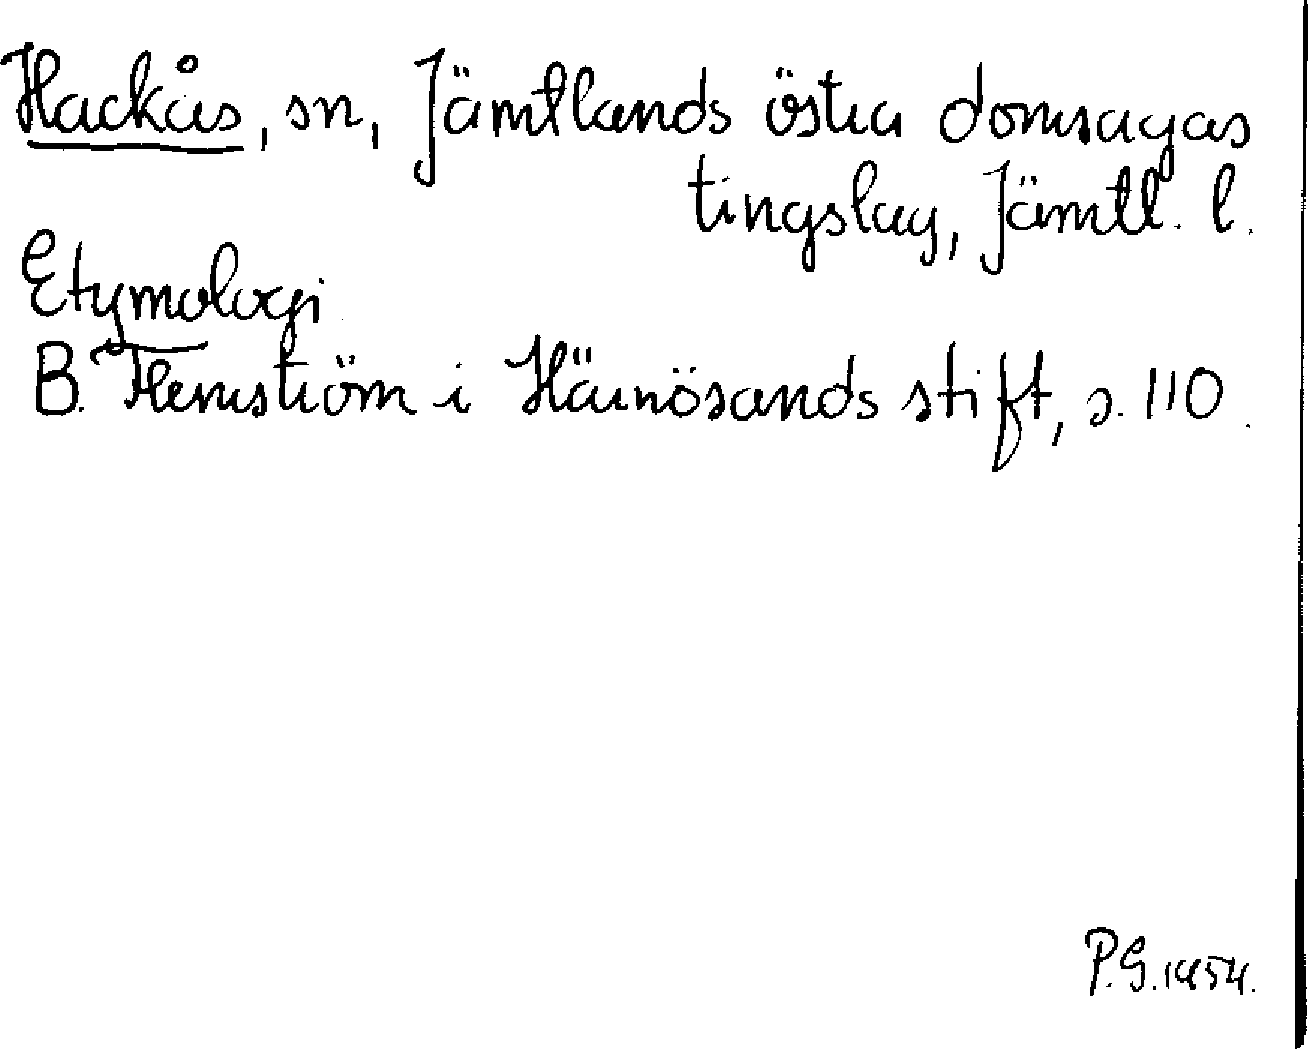 Hackås, sn, Jämtlands östra domsagas
tingslag, Jämtl. l.
Etymologi
B. Flemström i Härnösands stift, s. 110.
P.G. 1954.